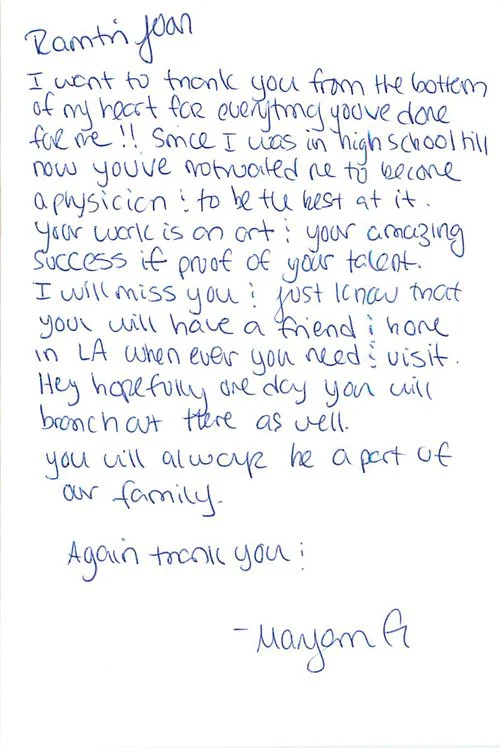 Ramtin Joan
I want to thank you from the bottom
of my heart for everything you've done
for me !! Since I was in high school till
now you've motivated me to become
a physician : to be the best at it.
Your work is an art : your amazing
success if proof of your talent.
I will miss you : just know that
your will have a friend : home
in LA when ever you need : visit.
Hey hopefully one day you will
branch out there as well.
you will always be a part of
our family.
Again thank you :
- Maryam G